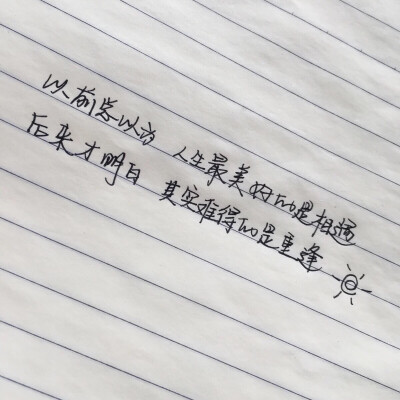 以前总以为 人生最美好的是相遇
后来才明白 其实难得的是重逢